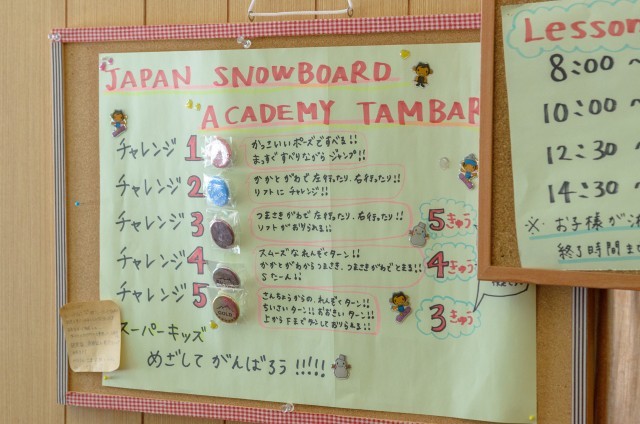 JAPAN SNOWBOARD
ACADEMY TAMBAR
チャレンジ 1
かっこいいポーズですべる!!
まっすぐすべりながら ジャンプ!!
チャレンジ 2
かかとがわで 左行ったり、右行ったり!!
リフトに チャレンジ!!
チャレンジ 3
つまさきがわで 左行ったり、右行ったり!!
リフトがおりられる!!
5きゅう
チャレンジ 4
スムーズな れんぞくターン!!
かかとがわからつまさき、つまさきがわでとまる!!
Sたーん!!
4きゅう
チャレンジ 5
さんちょうからの、れんぞくターン!!
ちいさいターン!! おおきいターン!!
上から下までターンしており られる!!
3きゅう
スーパーキッズ
めざして がんばろう!!!!!
Lesson
8:00 ~
10:00 ~
12:30 ~
14:30 ~
※ お子様が
終了時間ま